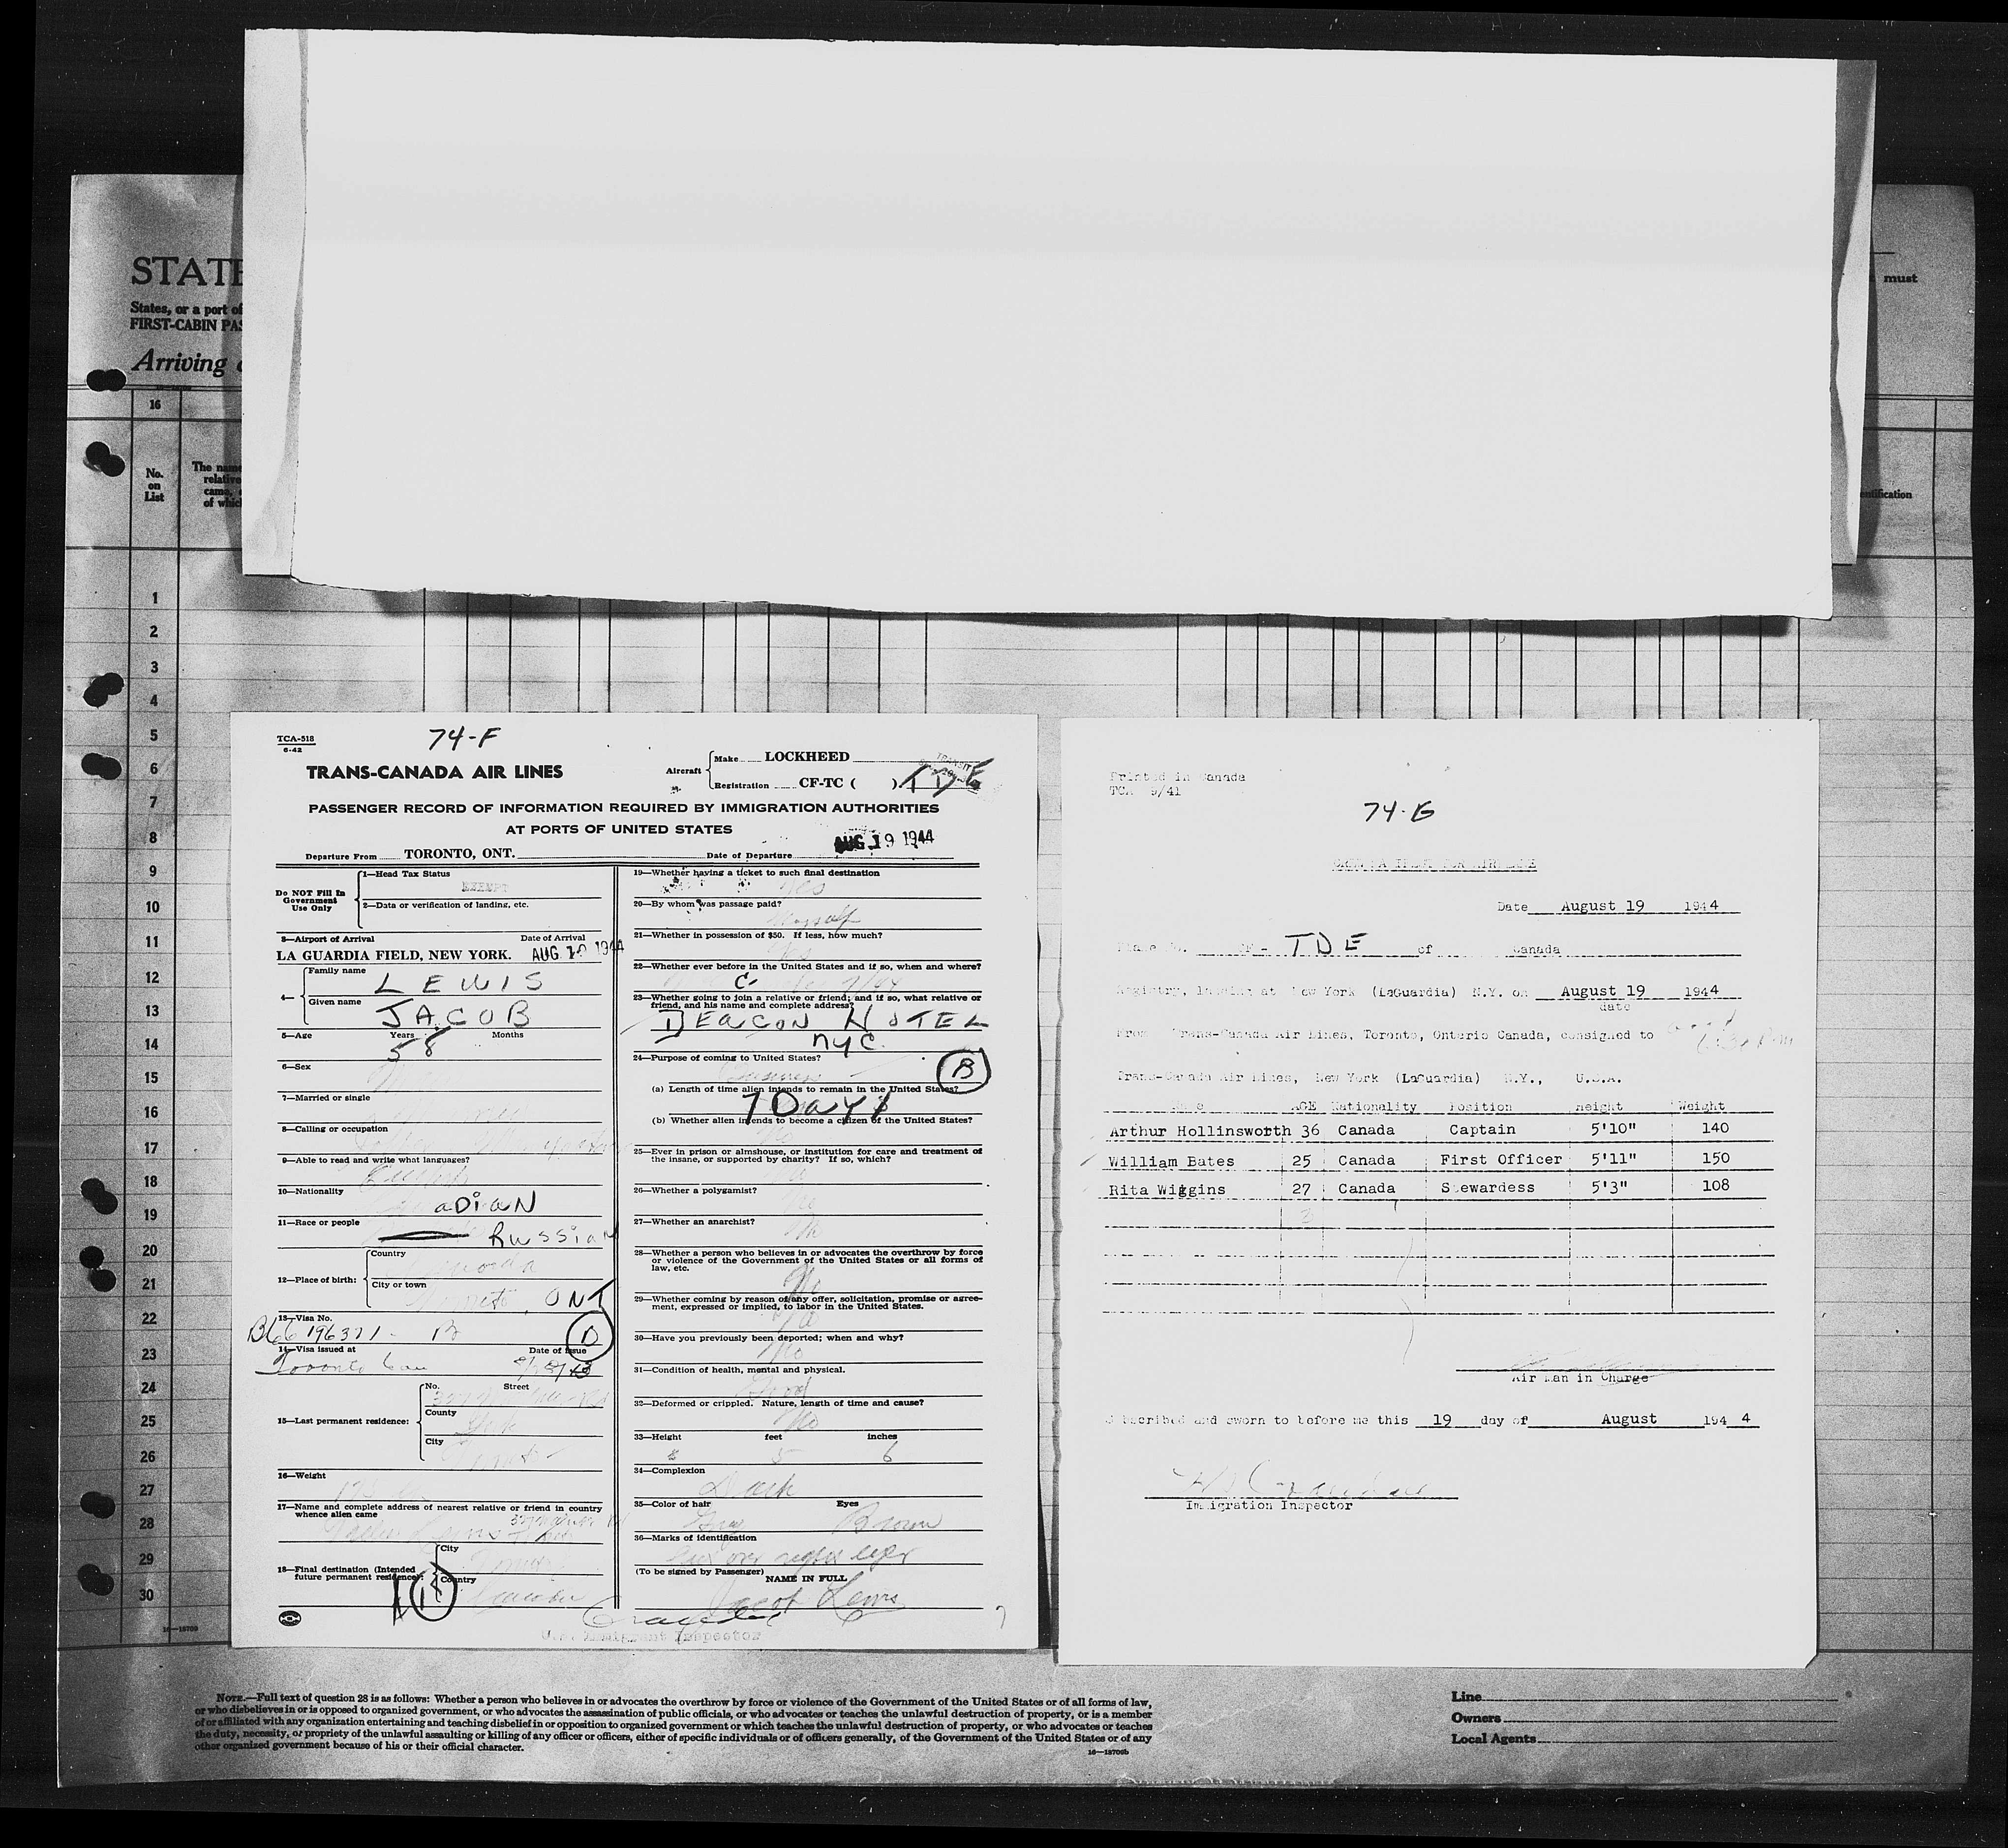 STATE
States, or a port of
FIRST-CABIN PAS
Arriving
must
16
No.
on
List
The name
relative
came,
of which
entification
1
2
3
4
5
6
7
8
9
10
11
12
13
14
15
16
17
18
19
20
21
22
23
24
25
26
27
28
29
30
16—18709
TCA-518
6-42
74-F
TRANS-CANADA AIR LINES
Aircraft
Make LOCKHEED
Registration CF-TC ( ) TDE
PASSENGER RECORD OF INFORMATION REQUIRED BY IMMIGRATION AUTHORITIES
AT PORTS OF UNITED STATES
Departure From TORONTO, ONT. Date of Departure AUG 19 1944
Do NOT Fill In
Government
Use Only
1—Head Tax Status
EXEMPT
2—Data or verification of landing, etc.
3—Airport of Arrival Date of Arrival
LA GUARDIA FIELD, NEW YORK. AUG 19 1944
4—
Family name
LEWIS
Given name
JACOB
5—Age Years Months
58
6—Sex
7—Married or single
8—Calling or occupation
9—Able to read and write what languages?
English
10—Nationality
aDiaN
11—Race or people
Russian
12—Place of birth:
Country
Canada
City or town
Toronto, ONT
13—Visa No.
B66 196371 - 13 D
14—Visa issued at Date of Issue
Toronto Can
15—Last permanent residence:
No. Street
County
York
City
Toronto
16—Weight
17—Name and complete address of nearest relative or friend in country
whence alien came
Lewis
18—Final destination (Intended
future permanent residence):
City
Toronto
Country
Canada
19—Whether having a ticket to such final destination
Yes
20—By whom was passage paid?
Myself
21—Whether in possession of $50. If less, how much?
Yes
22—Whether ever before in the United States and if so, when and where?
23—Whether going to join a relative or friend; and if so, what relative or
friend, and his name and complete address?
BEACON HOTEL
NYC
24—Purpose of coming to United States?
Business B
(a) Length of time alien intends to remain in the United States?
7 Days
(b) Whether alien intends to become a citizen of the United States?
No
25—Ever in prison or almshouse, or institution for care and treatment of
the insane, or supported by charity? If so, which?
No
26—Whether a polygamist?
No
27—Whether an anarchist?
No
28—Whether a person who believes in or advocates the overthrow by force
or violence of the Government of the United States or all forms of
law, etc.
No
29—Whether coming by reason of any offer, solicitation, promise or agree-
ment, expressed or implied, to labor in the United States.
No
30—Have you previously been deported; when and why?
No
31—Condition of health, mental and physical.
Good
32—Deformed or crippled. Nature, length of time and cause?
No
33—Height feet inches
5 6
34—Complexion
Dark
35—Color of hair Eyes
Gray Brown
36—Marks of identification
over right eye
(To be signed by Passenger)
NAME IN FULL
Jacob Lewis
U.S. Immigrant Inspector
Printed in Canada
TCA 9/41
74-G
Date August 19 1944
Plane No. CF- TDE of Canada
Registry, landing at New York (LaGuardia) N.Y. on August 19 1944
date
From Trans-Canada Air Lines, Toronto, Ontario Canada, consigned to
Trans-Canada Air Lines, New York (LaGuardia) N.Y., U.S.A.
Name AGE Nationality Position Height Weight
Arthur Hollinsworth 36 Canada Captain 5'10" 140
William Bates 25 Canada First Officer 5'11" 150
Rita Wiggins 27 Canada Stewardess 5'3" 108
3
Air Man in Charge
Subscribed and sworn to before me this 19 day of August 1944
Immigration Inspector
NOTE.—Full text of question 28 is as follows: Whether a person who believes in or advocates the overthrow by force or violence of the Government of the United States or of all forms of law,
or who disbelieves in or is opposed to organized government, or who advocates the assassination of public officials, or who advocates or teaches the unlawful destruction of property, or is a member
of or affiliated with any organization entertaining and teaching disbelief in or opposition to organized government or which teaches the unlawful destruction of property, or who advocates or teaches
the duty, necessity, or propriety of the unlawful assaulting or killing of any officer or officers, either of specific individuals or of officers generally, of the Government of the United States or of any
other organized government because of his or their official character.
16—18709b
Line
Owners
Local Agents